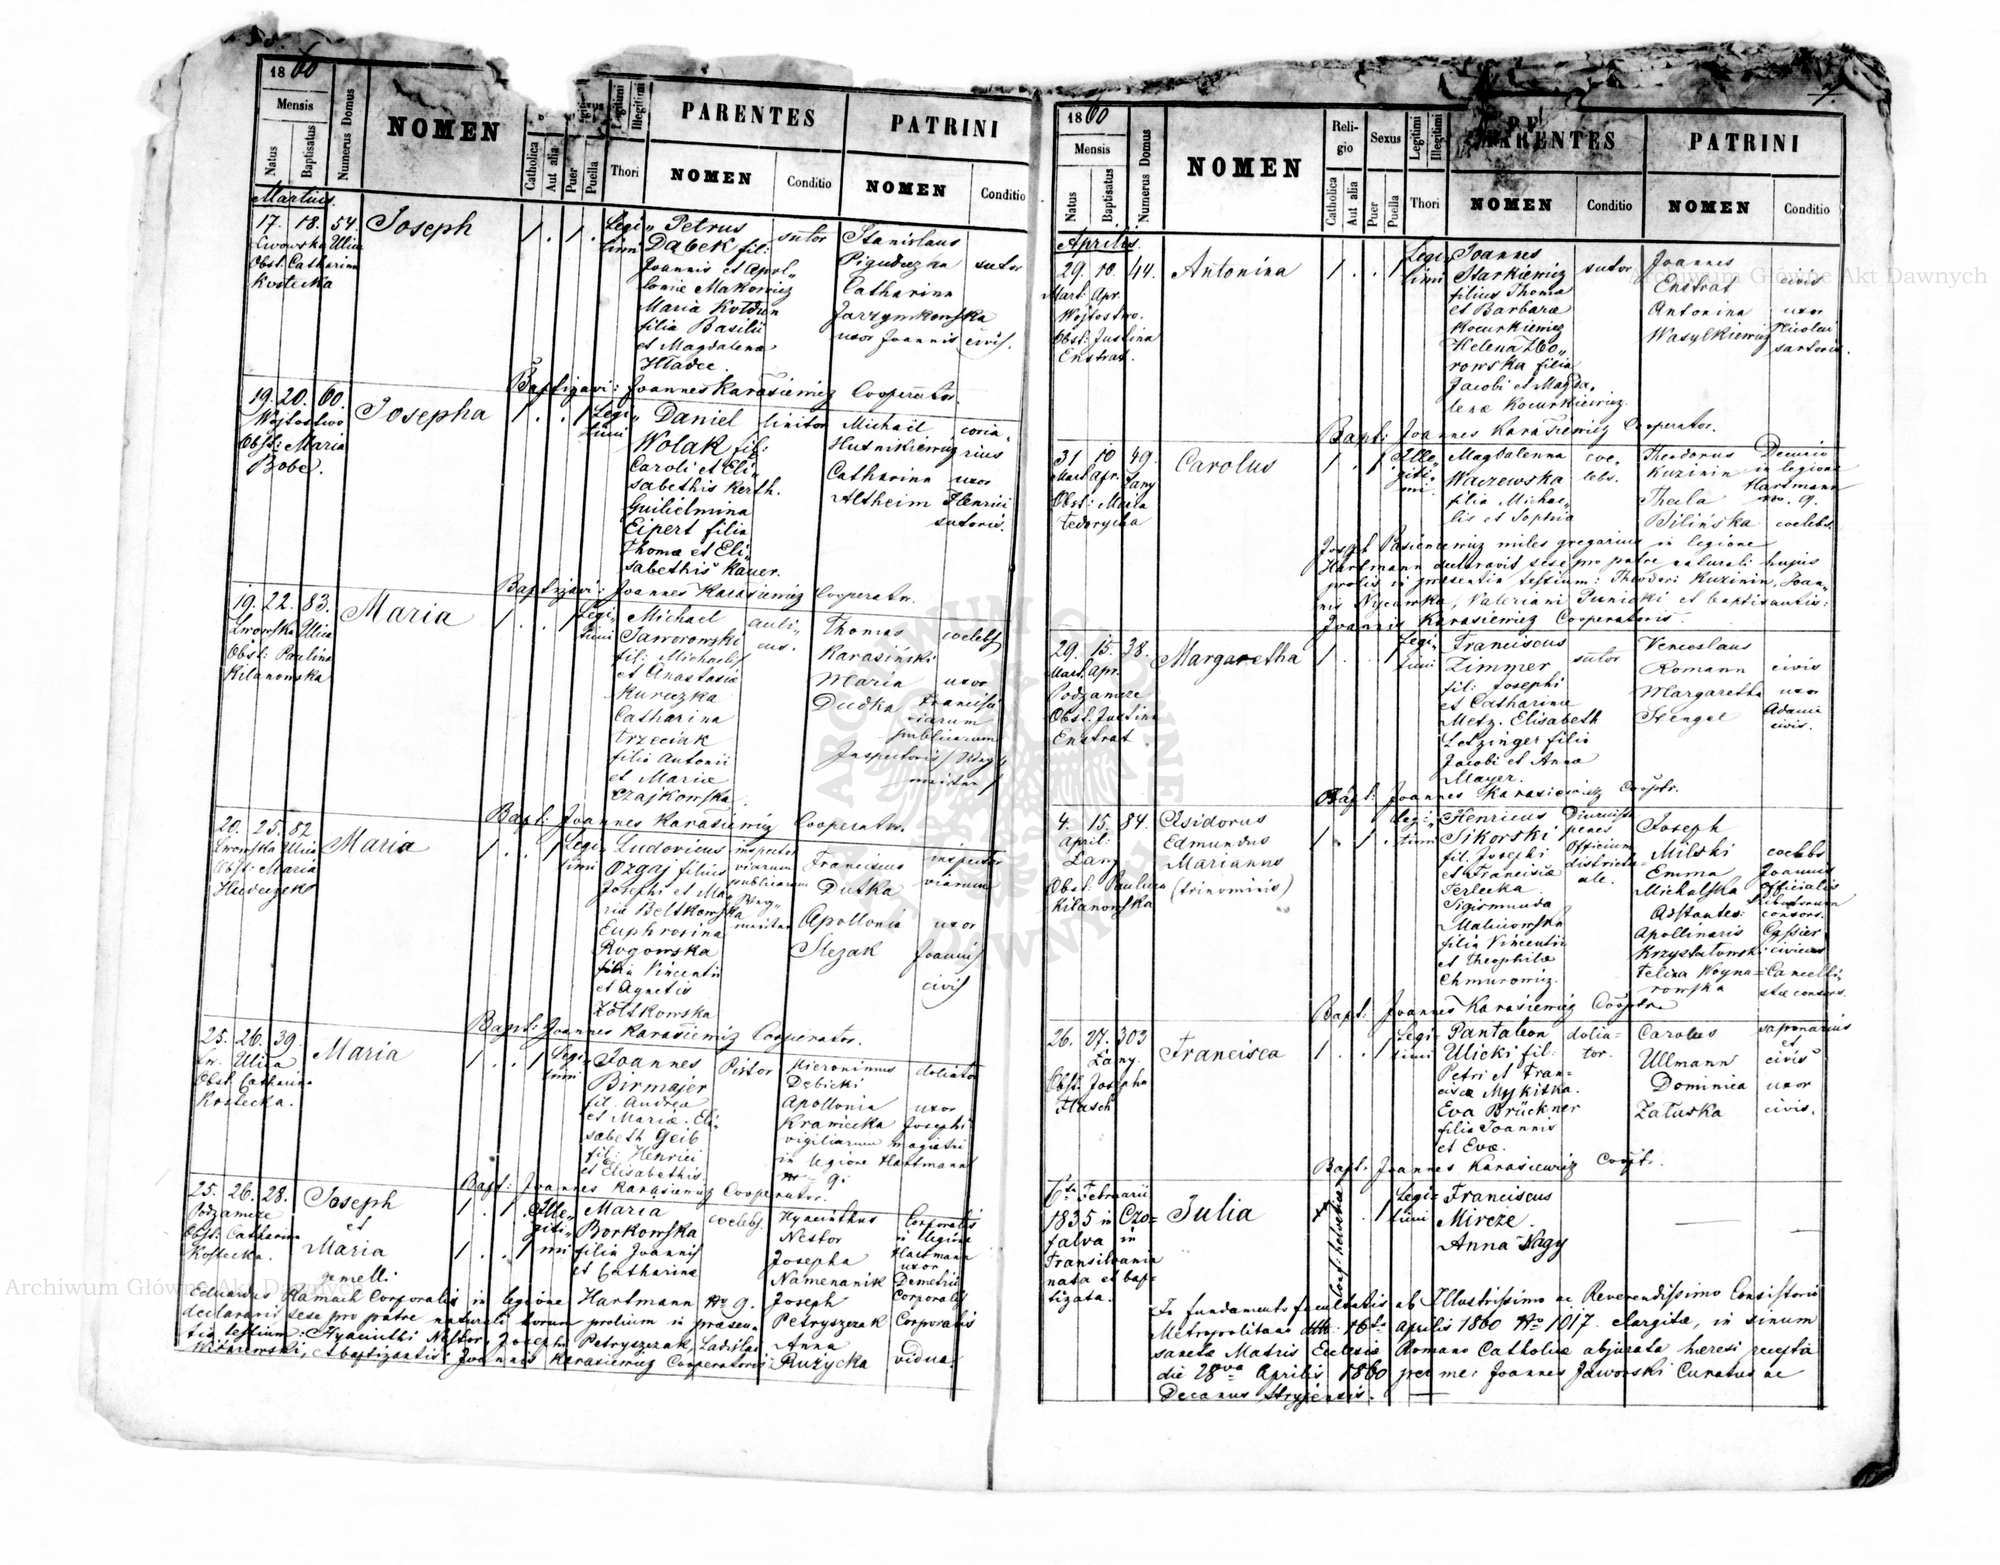 1860
Mensis
Natus
Baptisatus
Numerus Domus
NOMEN
Catholica
Aut alia
Puer
Puella
Legitimi
Illegitimi
Thori
PARENTES
NOMEN
Conditio
PATRINI
NOMEN
Conditio
Martius.
17. 18. 54.
Lwowska Ulica
Obst: Catharina
Kostecka
Joseph
1 . 1 .
Legi„
timi
Petrus
Dąbek fil:
Joannis et Apol„
lonie Makowicz
Maria Kołdun
filia Basilii
et Magdalena
Hładec.
sutor
Stanislaus
Piguduzka
Catharina
Jarzymkowska
uxor Joannis civis.
sutor
Baptizavi: Joannes Karasiewicz Cooperator.
19. 20. 60.
Wojtostwo
Obst: Maria
Bobe.
Josepha
1 . . 1
Legi„
timi
Daniel
Wolak fil:
Caroli et Eli„
sabethis Kerth.
Guilielmina
Eipert filia
Thomæ et Eli„
sabethis Kauer.
linitor
Michail
Hutnikiewicz
Catharina
Altheim
coria„
rius
uxor
Henrici
sutoris.
Baptizavi: Joannes Karasiewicz Cooperator.
19. 22. 83.
Lwowska Ulica
Obst: Paulina
Kilanowska
Maria
1 . . 1
Legi„
timi
Michael
Jaworowski
fil: Michaelis
et Anastasiæ
Kureczka
Catharina
Trzeciak
filia Antonii
et Mariæ
Czajkowska.
auli„
cus.
Thomas
Karasiński
Maria
Dudka
coelebs
uxor
Francisci
viarum
publicarum
Inspectoris / Weg„
meister /
Bapt: Joannes Karasiewicz Cooperator.
20. 25. 82
Lwowska Ulica
Obst: Maria
Huduczek
Maria
1 . . 1
Legi„
timi
Ludovicus
Ozgaj filius
Josephi et Ma„
riæ Beltkowska
Euphrosina
Rogowska
filia Vincentii
et Agnetis
Żółtkowska
inspector
viarum
publicarum
Weg„
meister
Franciscus
Dutka
Apollonia
Slezak
inspector
viarum
uxor
Joannis
civis
Bapt: Joannes Karasiewicz Cooperator.
25. 26. 39.
Lw. Ulica
Obst. Catharina
Kostecka.
Maria
1 . . 1
Legi„
timi
Joannes
Birmajer
fil. Andreæ
et Mariæ. Eli„
sabeth Geib
fil: Henrici
et Elisabethis
Pistor
Hieronimus
Dębicki
Apollonia
Krawiecka
doliator
uxor
Josephi
vigiliarum magistri
in legione Hartmann
No 9.
Bapt: Joannes Karasiewicz Cooperator.
25. 26. 28.
Podzamcze
Obst: Catharina
Kostecka.
Joseph
et
Maria
gemelli
1 . 1 .
1 . . 1
Ille„
giti„
mi
Maria
Borkowska
filia Joannis
et Catharinæ
coelebs.
Hyacinthus
Nestor
Josepha
Namenanik
Joseph
Petryszczak
Anna
Rużycka
Corporalis
in legione
Hartmann
uxor
Demetrii
Corporalis
Corporalis
vidua.
Eduardus Hamach Corporalis in legione Hartmann No 9.
declaravit sese pro patre naturali horum prolium in præsen„
tia testium: Hyacinthi Nestor, Josephi Petryszczak, Ladislai
Wiśniewski, et baptizantis Joannis Karasiewicz Cooperatoris
1860
7.
Mensis
Natus
Baptisatus
Numerus Domus
NOMEN
Religio
Catholica
Aut alia
Sexus
Puer
Puella
Legitimi
Illegitimi
Thori
PARENTES
NOMEN
Conditio
PATRINI
NOMEN
Conditio
Aprilis.
29. 10. 44.
Mart: Apr.
Wojtostwo.
Obst: Justina
Enstrat.
Antonina
1 . . 1
Legi„
timi
Joannes
Starkiewicz
filius Thomæ
et Barbaræ
Kocurkiewicz
Helena Zbo„
rowska filia
Jacobi et Magda„
lenæ Kocurkiewicz.
sutor
Joannes
Enstrat
Antonina
Wasylkiewicz
civis
uxor
Nicolai
sartoris.
Bapt: Joannes Karasiewicz Cooperator.
31 10 49.
Mart Apr. Łany
Obst: Maria
Fedorycha
Carolus
1 . 1
Ille„
giti„
mi.
Magdalenna
Waczewska
filia Michae„
lis et Sophia
coe„
lebs.
Theodorus
Kuzinin
Thecla
Bilińska
Decurio
in legione
Hartmann
no. 9.
coelebs.
Joseph Pasieniewicz miles gregarius in legione
Hartmann declaravit sese pro patre naturali hujus
prolis in præsentia testium: Theodori Kuzinin, Joan„
nis Nycawka, Valeriani Punicki et baptisantis:
Joannis Karasiewicz Cooperatoris.
29. 15. 38.
Mart. Apr.
Podzamcze
Obst: Justina
Enstrat
Margaretha
1 . . 1
Legi„
timi
Franciscus
Zimmer
fil: Josephi
et Catharina
Metz. Elisabeth
Lotzinger filia
Jacobi et Annæ
Mayer.
sutor
Venceslaus
Romann
Margaretha
Stengel
civis
uxor
Adami
civis.
Bapt: Joannes Karasiewicz Cooptr.
4. 15. 84.
April:
Łany
Obst: Paulina
Kilanowska
Isidorus
Edmundus
Marianus
(trinominis)
1 . 1 .
Legi„
timi
Henricus
Sikorski
fil. Josephi
et Franciscæ
Terlecka.
Sigismunda
Malinowska
filia Vincentii
et Theophilæ
Chmurowicz.
Diurnista
penes
Officium
districtu„
ale.
Joseph
Milski
Emma
Michalska
Adstantes:
Apollinaris
Krzyształowski
Felixa Woyna=
rowska
coelebs
Joannis
Officialis
consors.
Cassier
civicus
Cancelli„
stæ consors.
Bapt: Joannes Karasiewicz Cooptr
26. 27. 303
Łany.
Obst: Josepha
Flasch
Francisca
1 . . 1
Legi=
timi
Pantaleon
Ulicki fil:
Petri et Fran=
ciscæ Mykitka.
Eva Brückner
filia Joannis
et Evæ.
dolia=
tor.
Carolus
Ullmann
Dominica
Załuska
saponarius
et
civis
uxor
civis.
Bapt. Joannes Karasiewicz Cooptr.
6ta Februarii
1835 in Czo=
falva in
Transilvania
nata et bap=
tizata.
Julia
Conf: helvetica
. 1
Legi=
timi
Franciscus
Mircze.
Anna Nagy
In fundamento facultatis ab Illustrissimo ac Reverendissimo Consistorio
Metropolitano ddto: 16ta Aprilis 1860 No 1017. elargitæ, in sinum
sanctæ Matris Ecclesiæ Romano Catholicæ abjurata hæresi recepta
die 28va Aprilis 1860 per me: Joannes Jaworski Curatus ac
Decanus Stryjensis.
Archiwum Główne Akt Dawnych
Archiwum Główne Akt Dawnych
ARCHIWUM GŁÓWNE AKT DAWNYCH